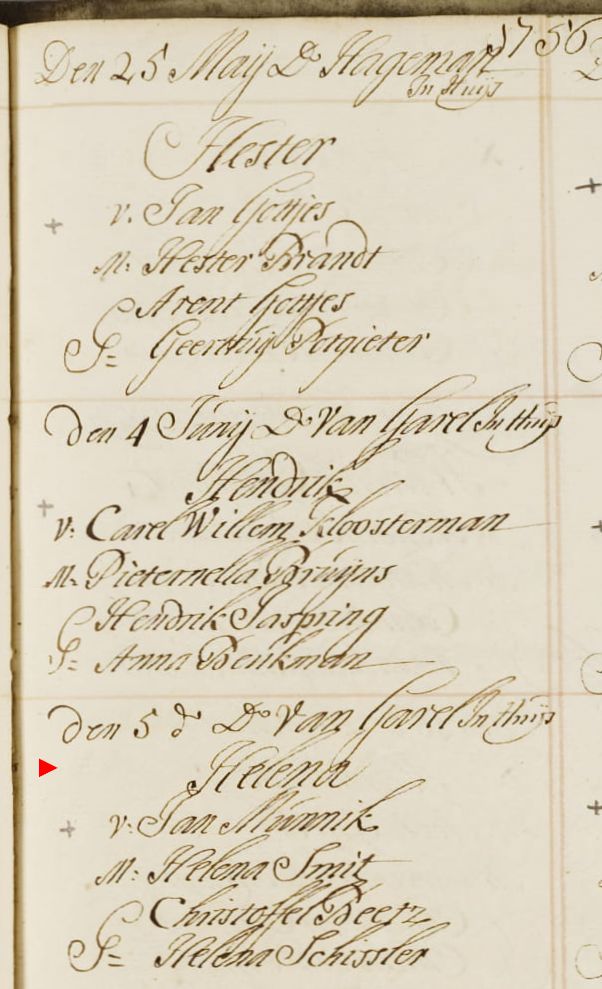 1756
Den 25 Maij Ds Hageman
In Huijs
Hester
v: Jan Gottjes
M: Hester Brandt
Arent Gottjes
G= Geertruij Potgieter
den 4 Junij Ds van Garel In Huijs
Hendrik
v: Carel Willem Kloosterman
M: Pieternella Bruijns
Hendrik Jaspring
G= Anna Beukman
den 5 do Ds van Garel In Huijs
Helena
v: Jan Munnik
M: Helena Smit
Christoffel Beerz
G= Helena Schissler